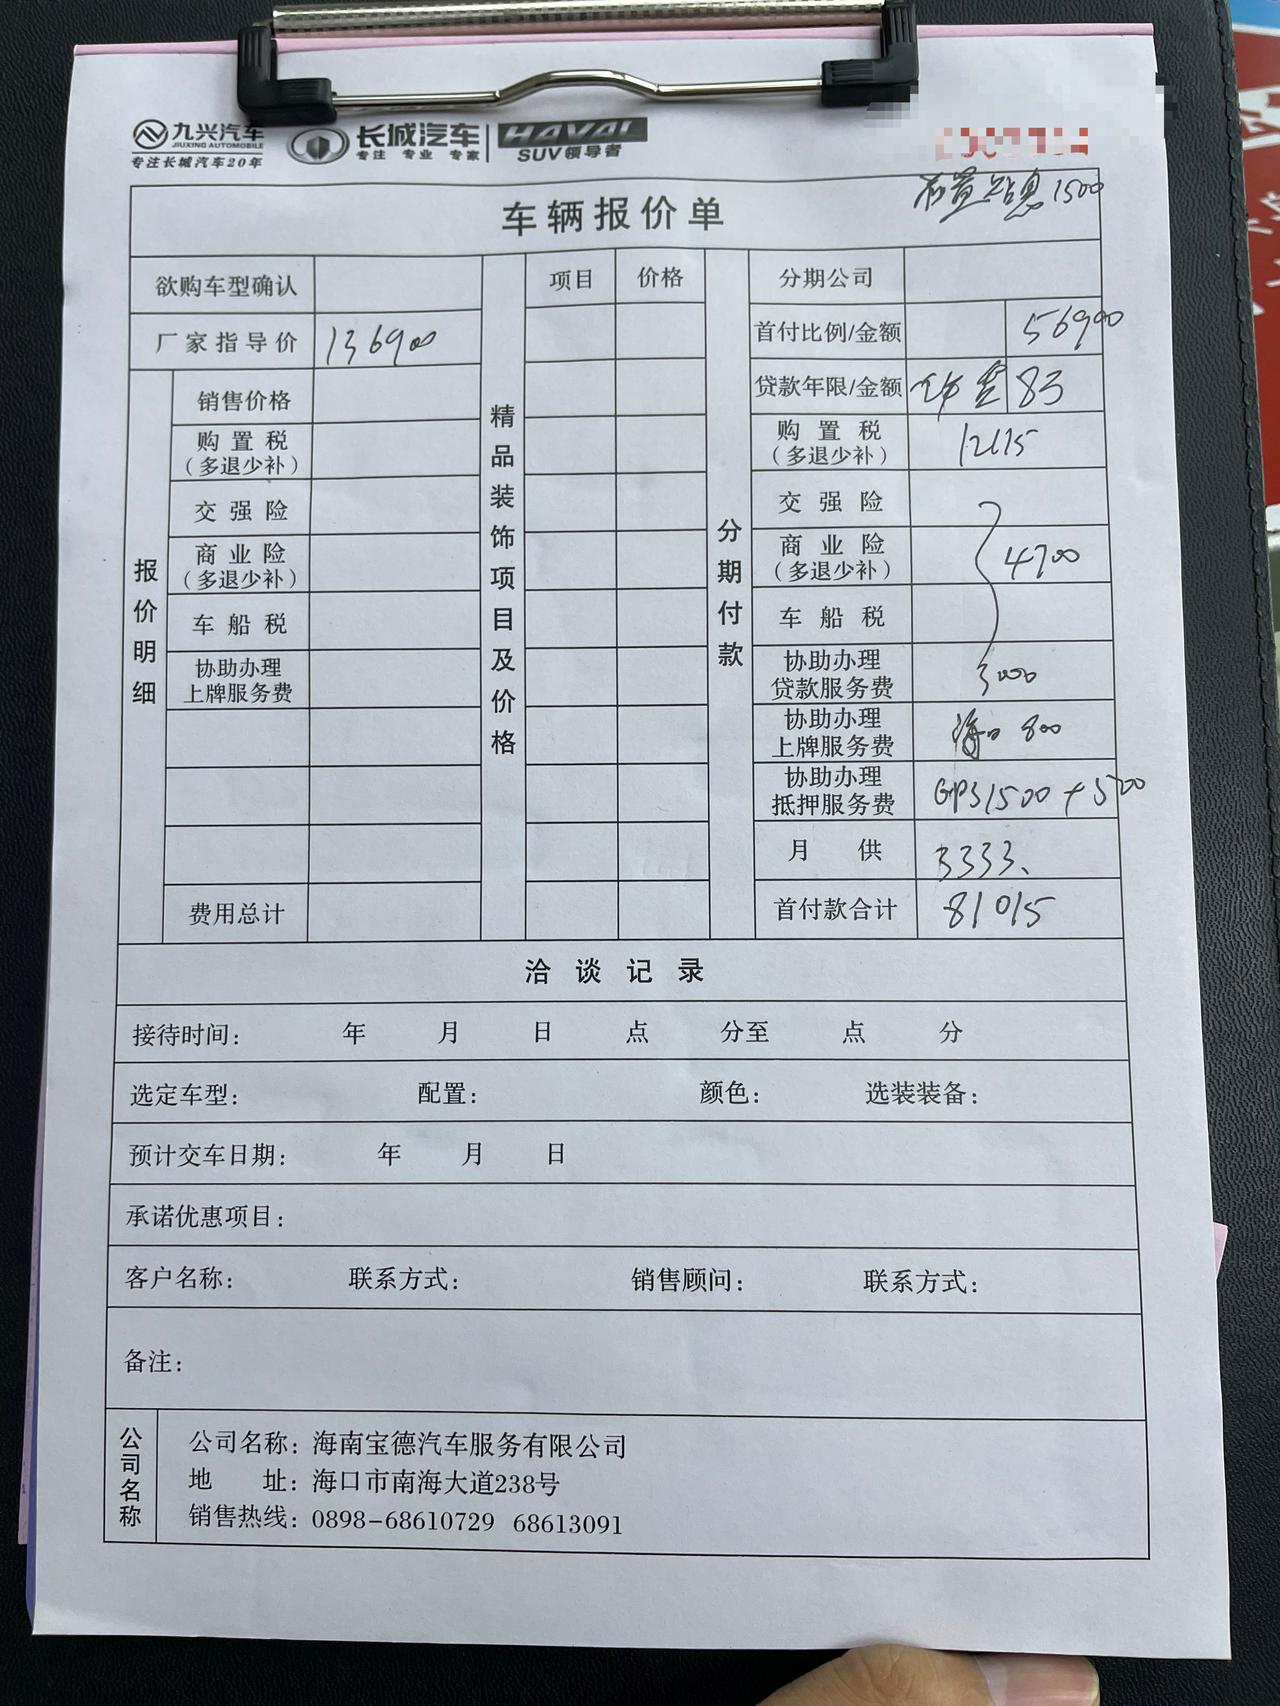 九兴汽车
JIUXING AUTOMOBILE
专注长城汽车20年
长城汽车
专注 专业 专家
HAVAL
SUV领导者
1500
车辆报价单
欲购车型确认
项目 价格
分期公司
厂家指导价 136900
首付比例/金额 56900
贷款年限/金额 83
报价明细
精品装饰项目及价格
分期付款
销售价格
购置税
(多退少补)
购置税
(多退少补)
12115
交强险
交强险
商业险
(多退少补)
商业险
(多退少补)
4700
车船税
车船税
协助办理
上牌服务费
协助办理
贷款服务费
3000
协助办理
上牌服务费
海口 800
协助办理
抵押服务费
GPS1500+500
月供 3333、
费用总计
首付款合计 81015
洽谈记录
接待时间: 年 月 日 点 分至 点 分
选定车型: 配置: 颜色: 选装装备:
预计交车日期: 年 月 日
承诺优惠项目:
客户名称: 联系方式: 销售顾问: 联系方式:
备注:
公司名称
公司名称: 海南宝德汽车服务有限公司
地 址: 海口市南海大道238号
销售热线: 0898-68610729 68613091